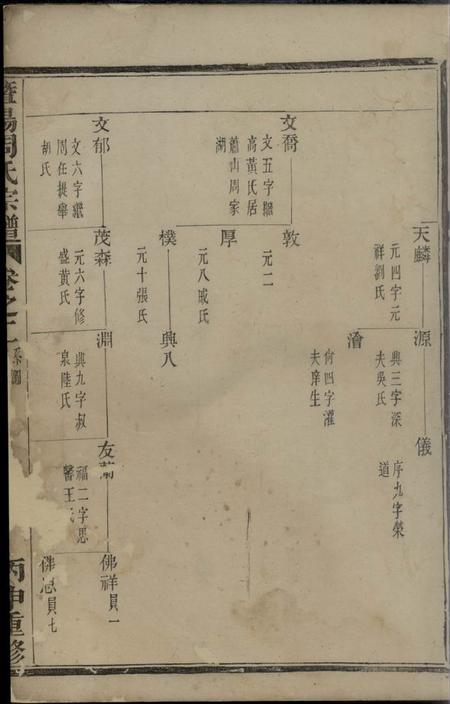 天麟
元四字元
祥劉氏
源
興三字深
夫吳氏
儀
序九字榮
道
澮
何四字濯
夫庠生
文喬
文五字驪
高黃氏居
蕭山周家
湖
敦
元二
厚
元八戚氏
樸
元十張氏
興八
文郁
文六字繼
周任提舉
胡氏
茂森
元六字修
盛黃氏
淵
興九字叔
泉陸氏
友蘭
福二字思
醫王氏
佛祥員一
佛 員七
暨陽周氏宗譜
卷之
系圖
丙申重修